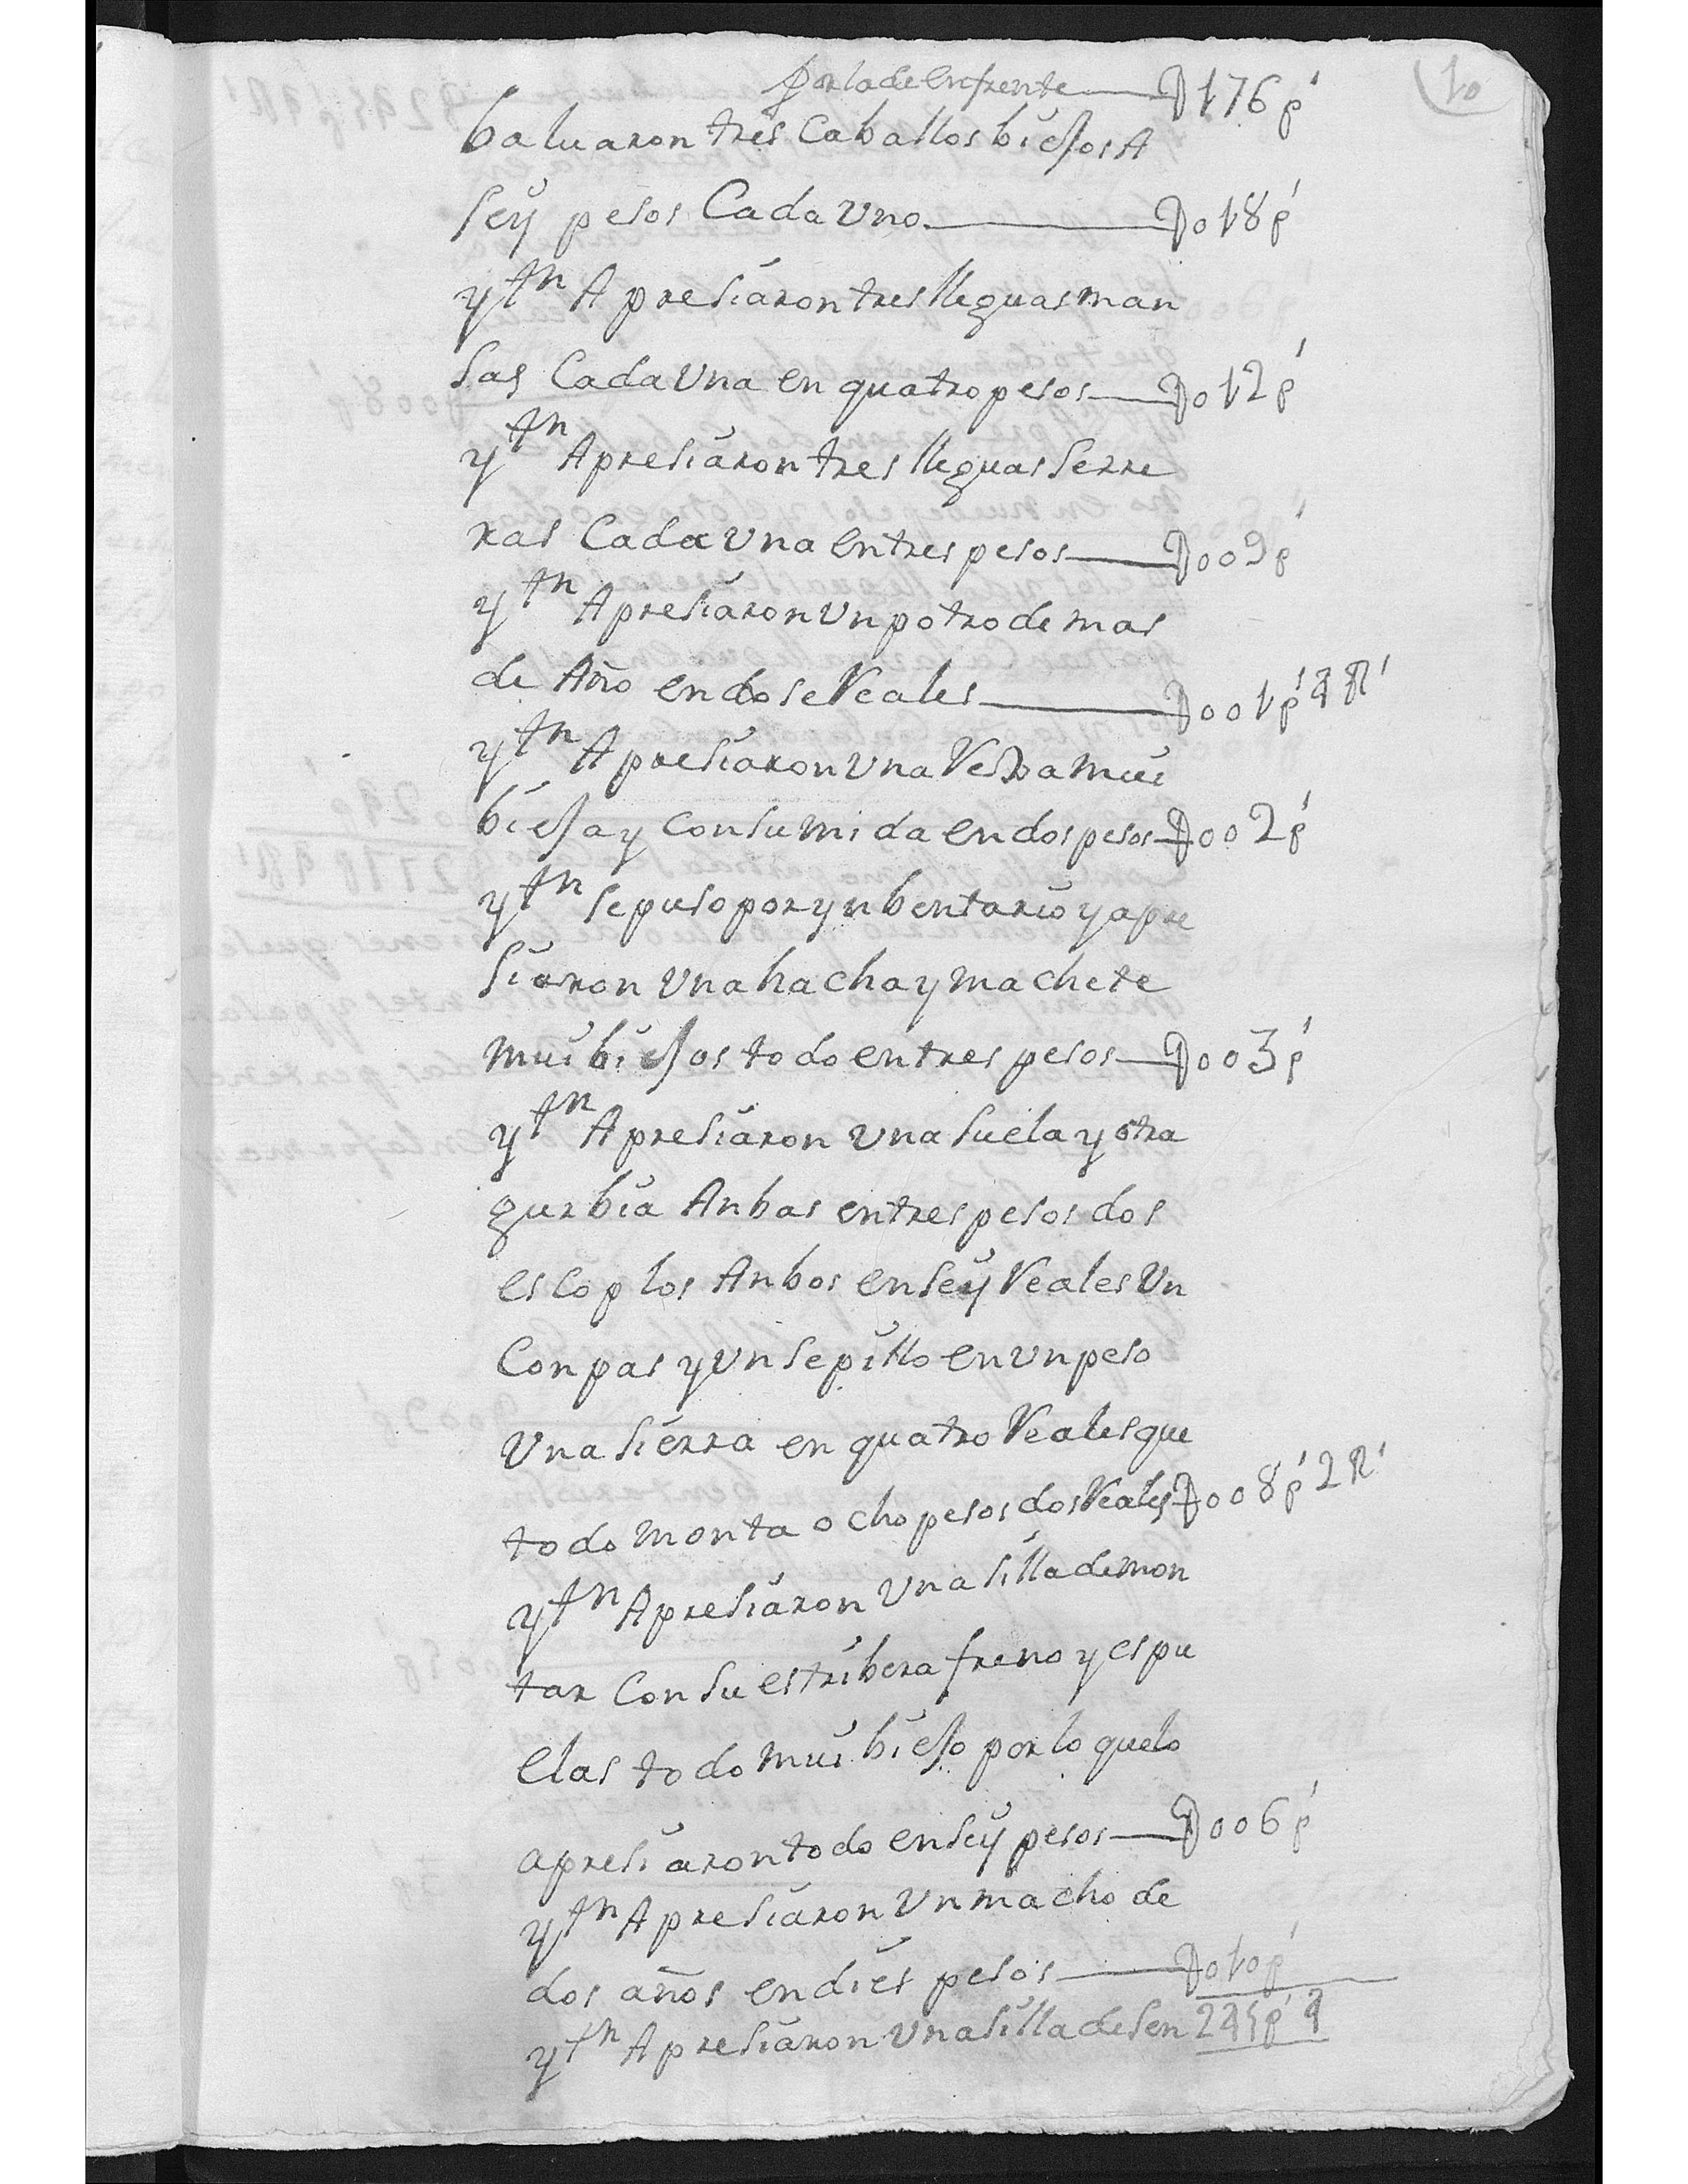 10
por la de enfrente — D176 ps
baluaron tres Caballos biejos A
seys pesos Cada Uno — D018 ps
ytn Apresiaron tres lleguas man
sas Cada Una en quatro pesos — D012 ps
ytn Apresiaron tres lleguas serre
ras Cada Una en tres pesos — D009 ps
ytn Apresiaron Un potro de mas
de Año en dose Reales — D001 ps 4 Rs
ytn Apresiaron Una mui
bieja y consumida en dos pesos — D002 ps
ytn se puso por ynbentario y apre
siaron Una hacha y machete
mui biejos todo en tres pesos — D003 ps
ytn Apresiaron Una suela y otra
gurbia Anbas en tres pesos dos
escoplos Anbos en seys Reales Un
Conpas y Un sepillo en Un peso
Una sierra en quatro Reales que
todo monta ocho pesos dos Reales — D008 ps 2 Rs
ytn Apresiaron Una silla de mon
tar Con su estribera freno y espu
elas todo mui biejo por lo que lo
apresiaron todo en seys pesos — D006 ps
ytn Apresiaron Un macho de
dos años en dies pesos — D010 ps
ytn Apresiaron Una silla de sen 245 ps 4